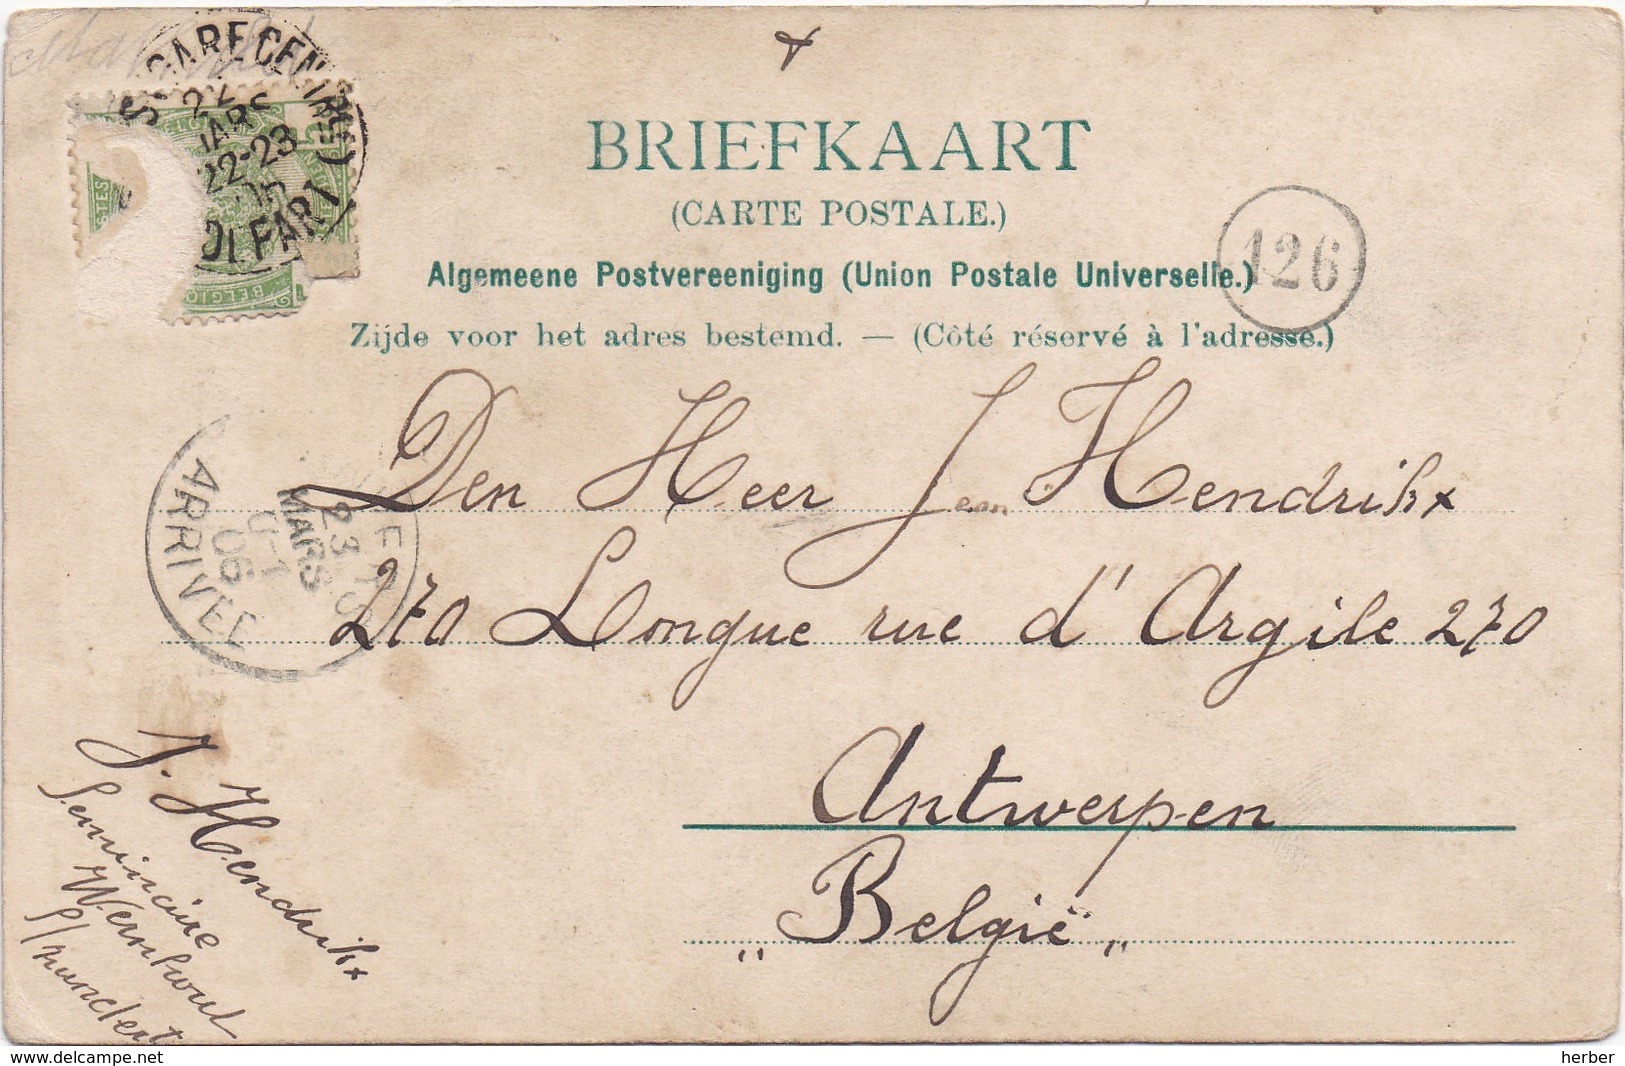 GARE CEN
22
MARS
22-23
FART
BELGIQ
STES
BRIEFKAART
(CARTE POSTALE.)
126
Algemeene Postvereeniging (Union Postale Universelle.)
Zijde voor het adres bestemd. — (Côté réservé à l'adresse.)
Den Heer Jean Hendrikx
270 Longue rue d'Argile 270
Antwerpen
„België„
23
MARS
0-1
06
ARRIVEE
J. Hendrikx
Seminaire
Wernhout
S/Zundert
www.delcampe.net
herber